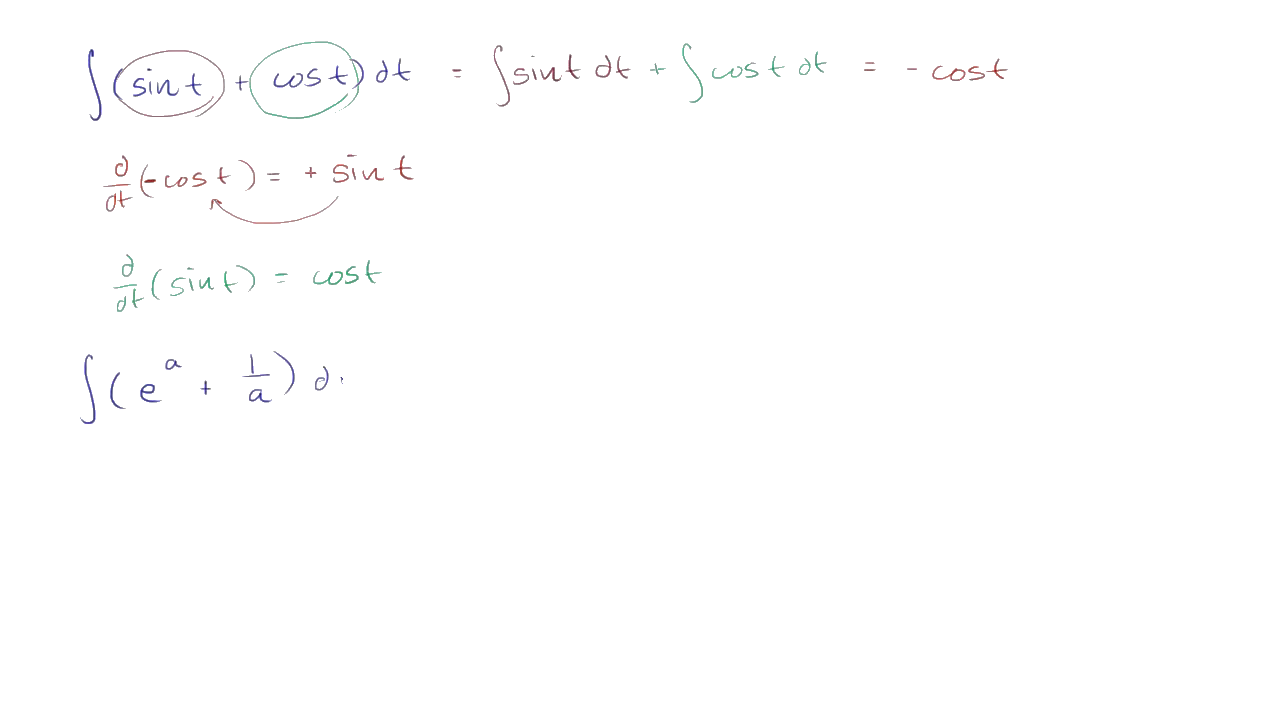 ∫(sin t + cos t) dt = ∫ sin t dt + ∫ cos t dt = - cos t
d/dt (-cos t) = + sin t
d/dt (sin t) = cos t
∫(e^a + 1/a) d